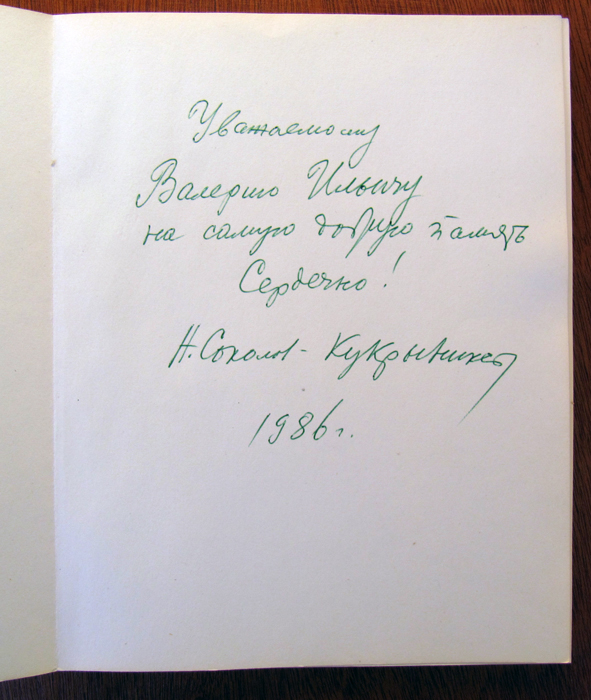 Уважаемому
Валерию Ильичу
на самую добрую память
Сердечно!
Н. Соколов - Кукрыникс
1986 г.